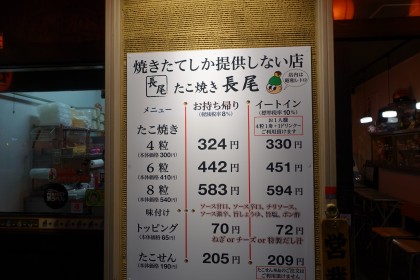 焼きたてしか提供しない店
長尾 たこ焼き 長尾
メニュー お持ち帰り イートイン
(軽減税率8%) (標準税率10%)
お1人様
4粒1舟+1ドリンク〜
ご利用頂けます
たこ焼き
4粒 324円 330円
(本体価格300円)
6粒 442円 451円
(本体価格410円)
8粒 583円 594円
(本体価格540円)
味付け ソース甘口、ソース辛口、チリソース、
トッピング 70円 72円
(本体価格65円) ねぎ or チーズ or 特製だし汁
たこせん 205円 209円
(本体価格190円)
ご利用頂けます
営業